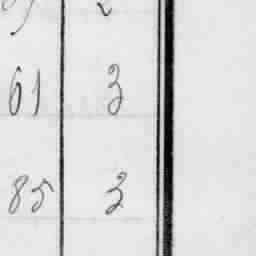 61 3
85 3